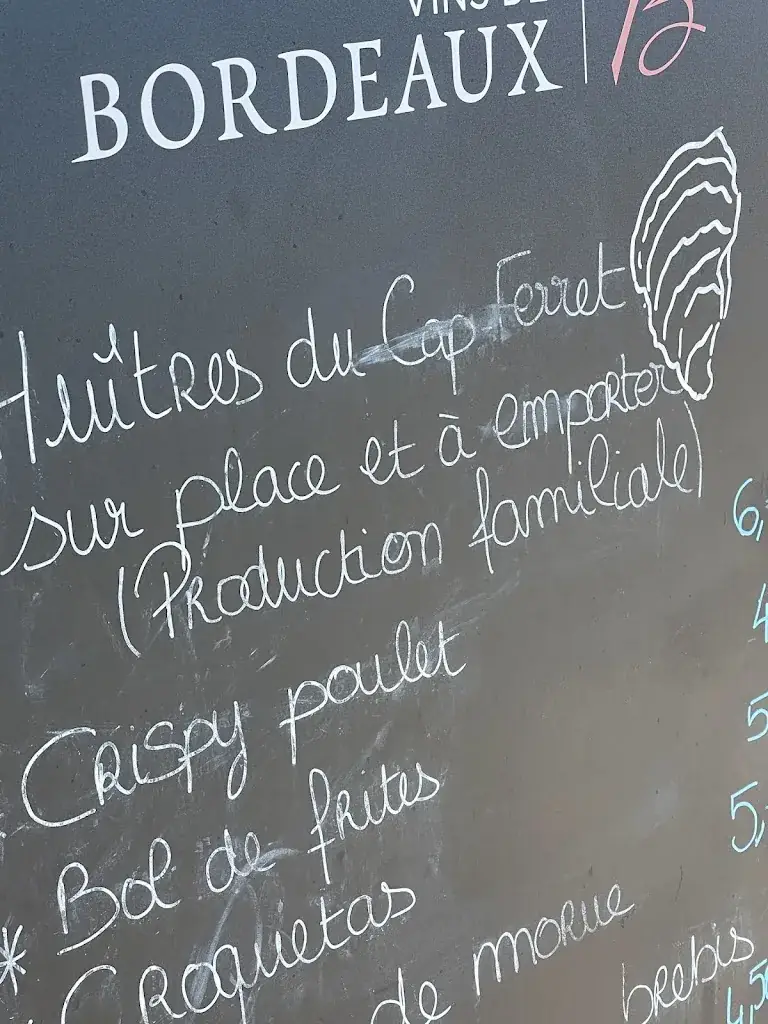 VINS DE
BORDEAUX
Huîtres du Cap Ferret
sur place et à emporter
(Production familiale)
6,
Crispy poulet
4
Bol de frites
5
* Croquetas
5,
de morue
brebis
4,50